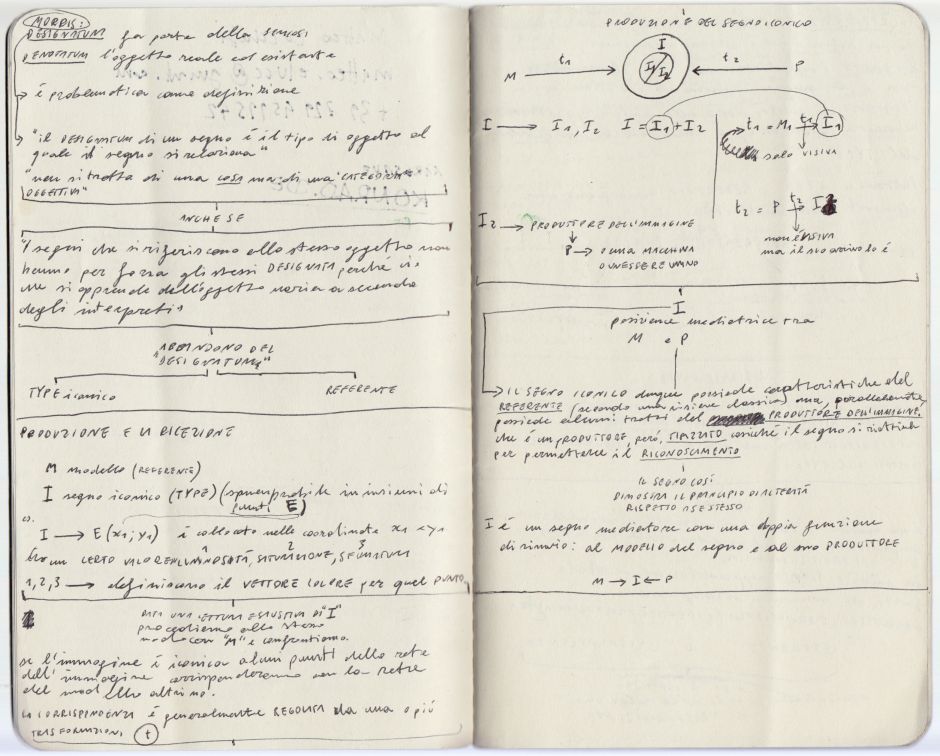 MORRIS:
DESIGNATUM fa parte della semiosi
DENOTATUM l'oggetto reale ed esistente
è problematica come definizione
"il DESIGNATUM di un segno è il tipo di oggetto al
quale il segno si relaziona"
"non si tratta di una COSA ma di una CATEGORIA
OGGETTIVA"
ANCHE SE
"I segni che si riferiscono allo stesso oggetto non
hanno per forza gli stessi DESIGNATA perché ciò
che si apprende dell'oggetto varia a seconda
degli interpreti"
ABBANDONO DEL
"DESIGNATUM"
TYPE iconico REFERENTE
PRODUZIONE E LA RICEZIONE
M modello (REFERENTE)
I segno iconico (TYPE) in insiemi di
punti E)
I → E(x1; y1) è collocato nelle coordinate x1 e y1
ha un CERTO VALORE LUMINOSITÀ, SATURAZIONE,
1, 2, 3 → definiscono il VETTORE COLORE per quel PUNTO
DATA UNA LETTURA ESAUSTIVA DI "I"
procediamo allo stesso
modo con "M" e confrontiamo.
se l'immagine è iconica alcuni punti della rete
dell'immagine corrisponderanno con la rete
del modello
LA CORRISPONDENZA è generalmente REGOLATA da una o più
TRASFORMAZIONI (t)
PRODUZIONE DEL SEGNO ICONICO
I
M t1 → I1 I2 ← t2 P
I → I1, I2 I = I1 + I2
t1 = M t1 → I1
solo VISIVA
t2 = P t2 → I2
non è VISIVA
ma il suo arrivo lo è
I2 → PRODUTTORE DELL'IMMAGINE
P → O UNA MACCHINA
O UN ESSERE UMANO
I
posizione mediatrice tra
M e P
IL SEGNO ICONICO dunque possiede caratteristiche del
REFERENTE (secondo una visione classica) ma, parallelamente,
possiede alcuni tratti del PRODUTTORE DELL'IMMAGINE
che è un PRODUTTORE, però, cosicché il segno si
per permettere il RICONOSCIMENTO
IL SEGNO COSÌ
DIMOSTRA IL PRINCIPIO DI ALTERITÀ
RISPETTO A SE STESSO
I è un segno mediatore con una doppia funzione
di rinvio: al MODELLO del segno e al suo PRODUTTORE
M → I ← P